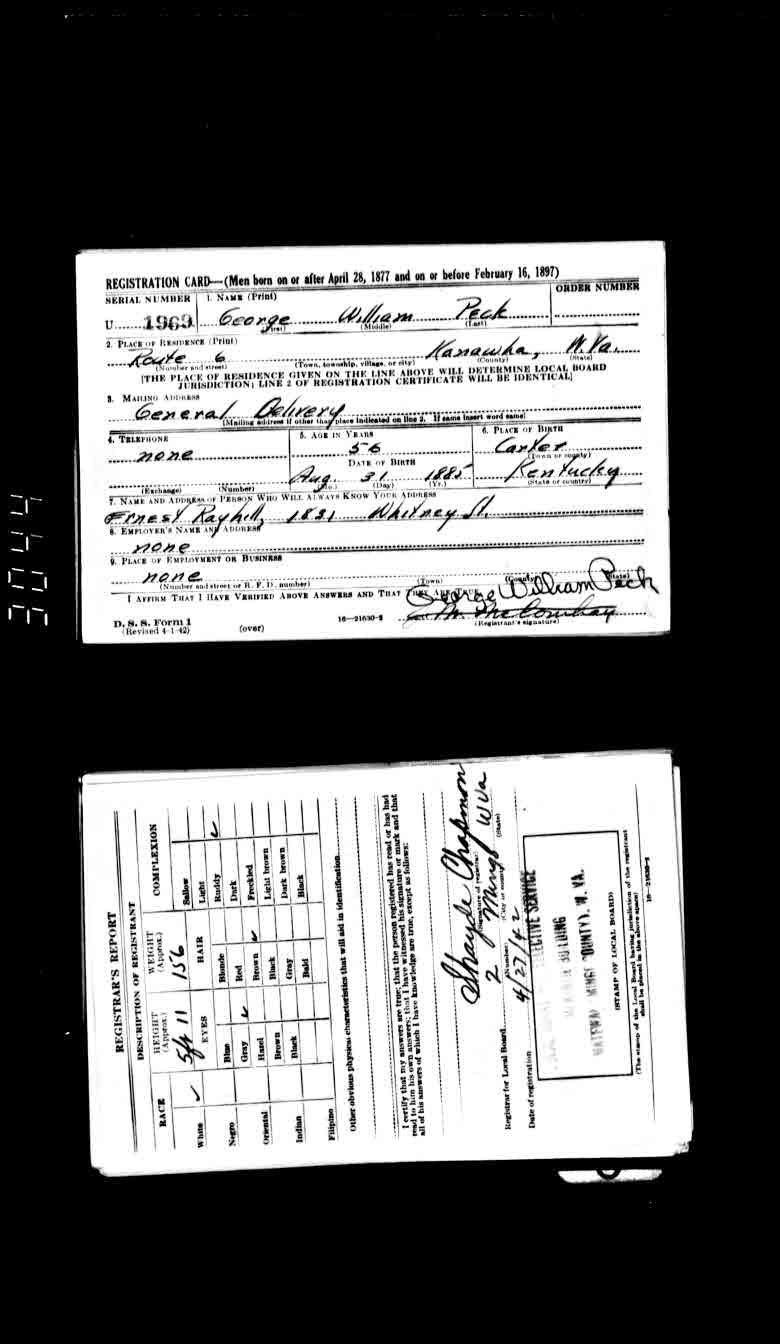 REGISTRATION CARD—(Men born on or after April 28, 1877 and on or before February 16, 1897)
SERIAL NUMBER 1. NAME (Print) ORDER NUMBER
U 1969 George William Peck
(First) (Middle) (Last)
2. PLACE OF RESIDENCE (Print)
Route 6 Kanawha, W.Va.
(Number and street) (Town, township, village, or city) (County) (State)
[THE PLACE OF RESIDENCE GIVEN ON THE LINE ABOVE WILL DETERMINE LOCAL BOARD
JURISDICTION; LINE 2 OF REGISTRATION CERTIFICATE WILL BE IDENTICAL]
3. MAILING ADDRESS
General Delivery
[Mailing address if other than place indicated on line 2. If same insert word same]
4. TELEPHONE 5. AGE IN YEARS 6. PLACE OF BIRTH
none 56 Carter
(Town or county)
DATE OF BIRTH
Aug. 31 1885 Kentucky
(Exchange) (Number) (Mo.) (Day) (Yr.) (State or country)
7. NAME AND ADDRESS OF PERSON WHO WILL ALWAYS KNOW YOUR ADDRESS
Ernest Rayhill, 1831 Whitney St.
8. EMPLOYER'S NAME AND ADDRESS
none
9. PLACE OF EMPLOYMENT OR BUSINESS
none
(Number and street or R. F. D. number) (Town) (County) (State)
I AFFIRM THAT I HAVE VERIFIED ABOVE ANSWERS AND THAT THEY ARE TRUE.
George William Peck
D. S. S. Form 1
(Revised 4-1-42) (over) 16—21630-2 (Registrant's signature)
3044
REGISTRAR'S REPORT
DESCRIPTION OF REGISTRANT
RACE HEIGHT (Approx.) WEIGHT (Approx.) COMPLEXION
White ✓ 5ft 11 156 Sallow
EYES HAIR Light
Negro Blue Blonde Ruddy ✓
Gray ✓ Red Dark
Oriental Hazel Brown ✓ Freckled
Brown Black Light brown
Indian Black Gray Dark brown
Bald Black
Filipino
Other obvious physical characteristics that will aid in identification
I certify that my answers are true; that the person registered has read or has had
read to him his own answers; that I have witnessed his signature or mark and that
all of his answers of which I have knowledge are true, except as follows:
Chapmon
(Signature of registrar)
Registrar for Local Board 2 Mingo W Va
(Number) (City or county) (State)
Date of registration 4/27/42
SELECTIVE SERVICE
BUILDING
MATEWAN MINGO COUNTY), W. VA.
(STAMP OF LOCAL BOARD)
(The stamp of the Local Board having jurisdiction of the registrant
shall be placed in the above space)